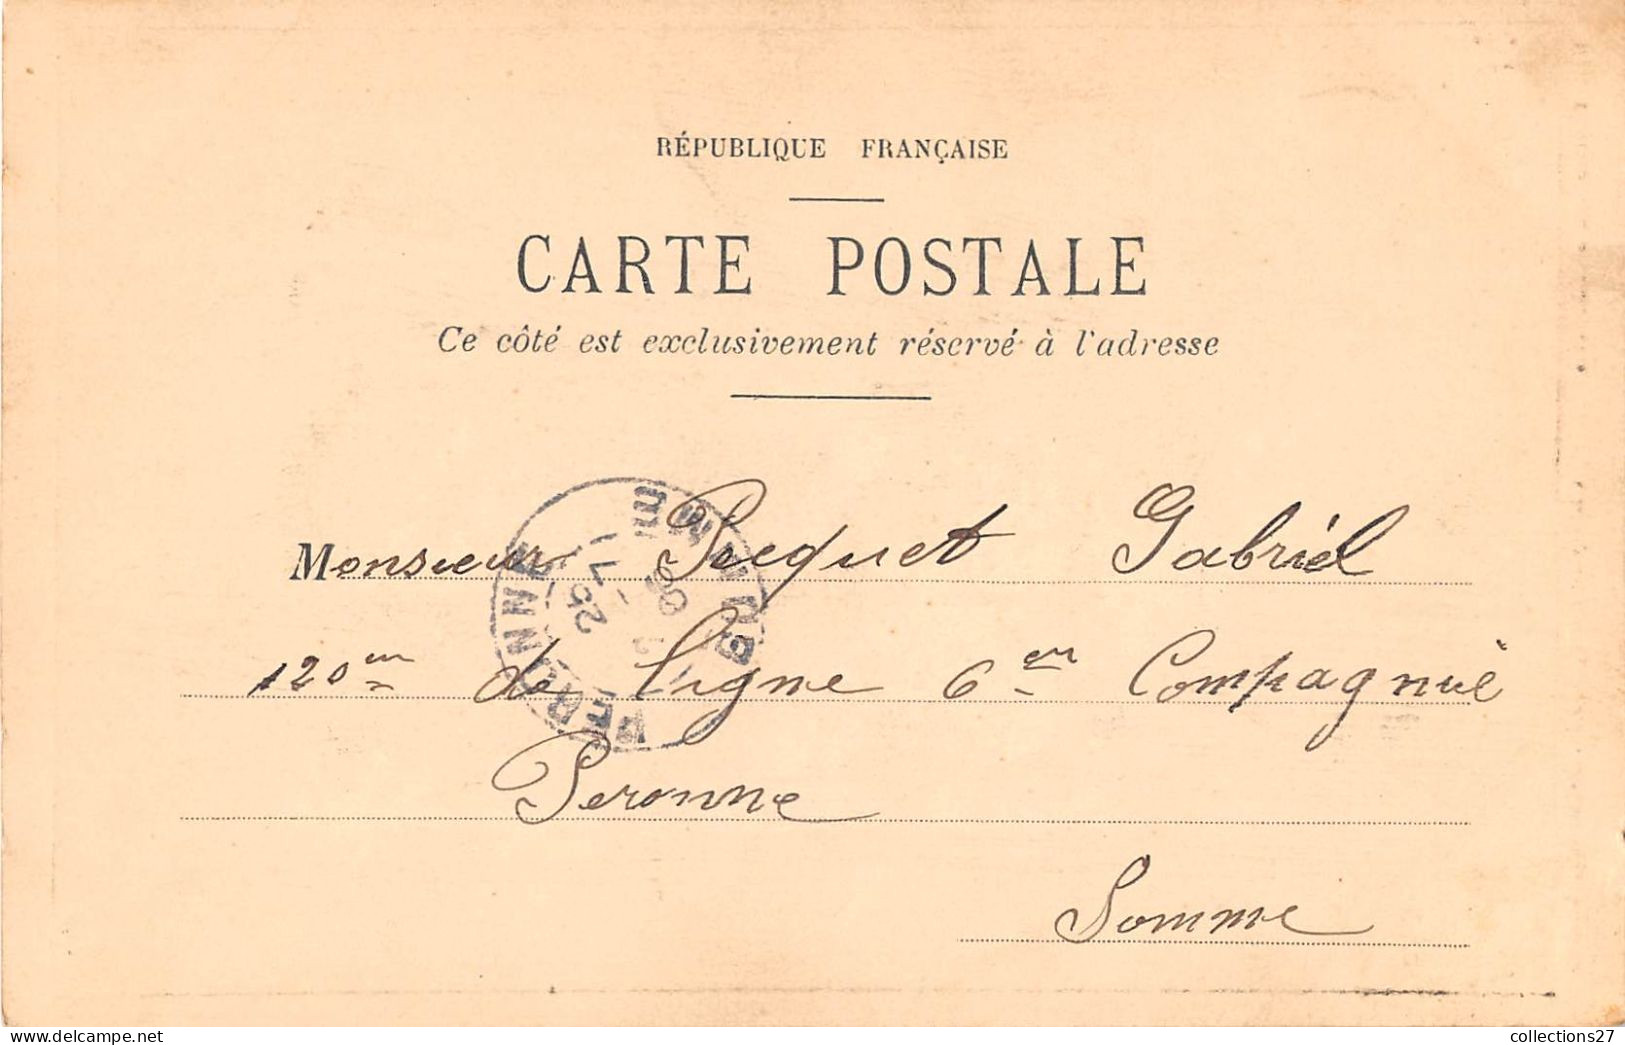 RÉPUBLIQUE FRANÇAISE
CARTE POSTALE
Ce côté est exclusivement réservé à l'adresse
Monsieur Pecquet Gabriel
120em de ligne 6em Compagnie
Peronne
Somme
PERONNE
SOMME
25
collections27